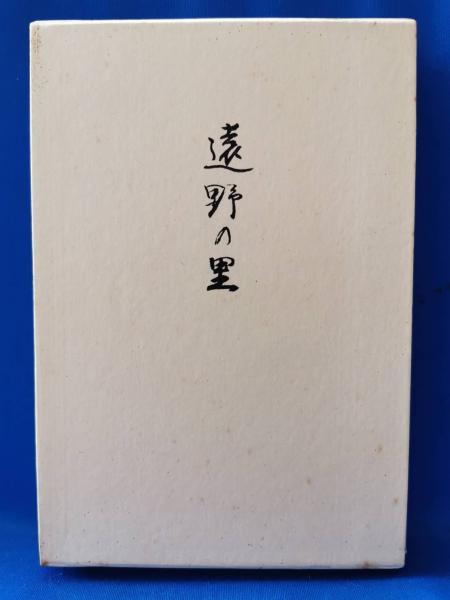 遠野の里